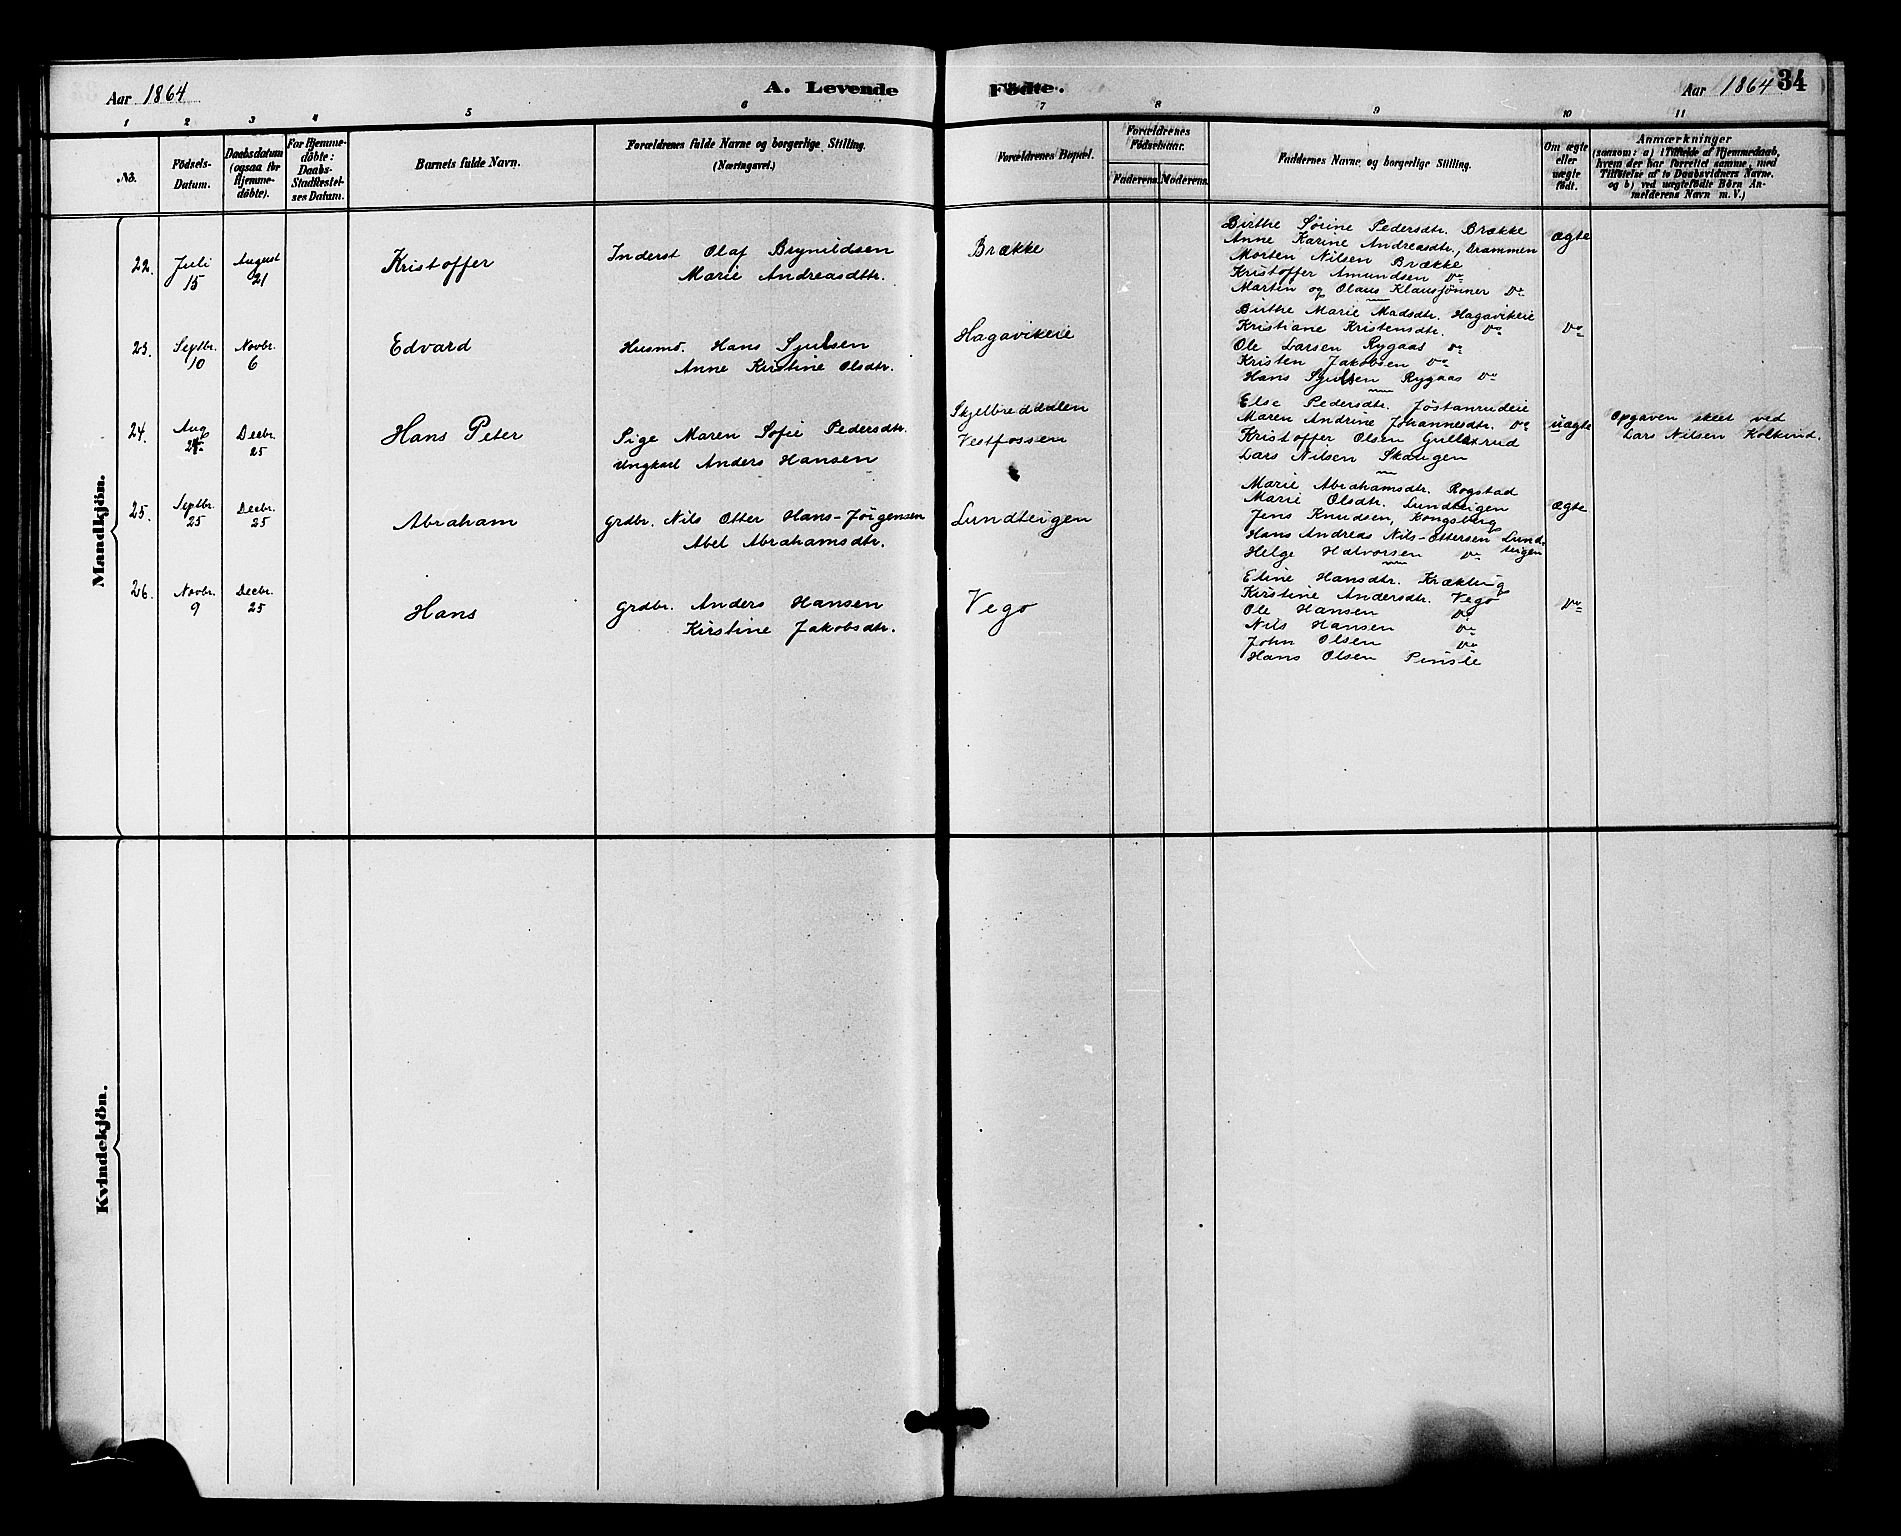 Aar 1864
A. Levende Födte.
Aar 1864 34
1 2 3 4 5 6 7 8 9 10 11
No.
Födsels-Datum.
Daabsdatum (ogsaa for Hjemme-döbte).
For Hjemme-döbte: Daabs-Stadfæstel-ses Datum.
Barnets fulde Navn.
Forældrenes fulde Navne og borgerlige Stilling. (Næringsvei.)
Forældrenes Bopæl.
Forældrenes Födselsaar.
Faderens. Moderens.
Faddernes Navne og borgerlige Stilling.
Om ægte eller uægte födt.
Anmærkninger
(saasom: a) i Tilfælde af Hjemmedaab,
hvem der har forrettet samme, med
Tilföielse af to Daabsvidners Navne,
og b) ved uægtefödte Börn An-
melderens Navn m. V.)
Mandkjön.
22. Juli 15 August 21 Kristoffer
Inderst Olaf Brynildsen
Marie Andreasdtr.
Brække
Birthe Sørine Pedersdtr. Brække
Anne Karine Andreasdtr., Drammen
Morten Nilsen Brække
Kristoffer Amundsen Do
Martin og Olaus Klausjønner Do
ægte
23. Septbr. 10 Novbr. 6 Edvard
Husmd. Hans Sjulsen
Anne Kirstine Olsdtr.
Hagavikeie
Birthe Marie Madsdtr. Hagavikeie
Kristiane Kristensdtr. Do
Ole Larsen Rygaas Do
Kristen Jakobsen Do
Hans Sjulsen Rygaas Do
Do
24. Aug. Decbr. 25 Hans Peter
Pige Maren Sofie Pedersdtr.
Ungkarl Anders Hansen
Skjelbreddalen
Vestfossen
Else Pedersdtr. Jøstanrudeie
Maren Andrine Johannesdtr. Do
Kristoffer Olsen Gullerud
Lars Nilsen Skaugen
uægte
Opgaven skeet ved
Lars Nilsen Kolkind.
25. Septbr. 25 Decbr. 25 Abraham
Grdbr. Nils Otter Hans-Jørgensen
Abel Abrahamsdtr.
Lundteigen
Marie Abrahamsdtr. Rogstad
Marie Olsdtr. Lundteigen
Jens Knudsen, Kongsberg
Hans Andreas Nils-Ottersen Lund-
teigen
Helge Halvorsen Do
ægte
26. Novbr. 9 Decbr. 25 Hans
Grdbr. Anders Hansen
Kirstine Jakobsdtr.
Vego
Eline Hansdtr. Krækling
Kirstine Andersdtr. Vego
Ole Hansen Do
Nils Hansen Do
John Olsen Do
Hans Olsen Pinsle
Do
Kvindekjön.